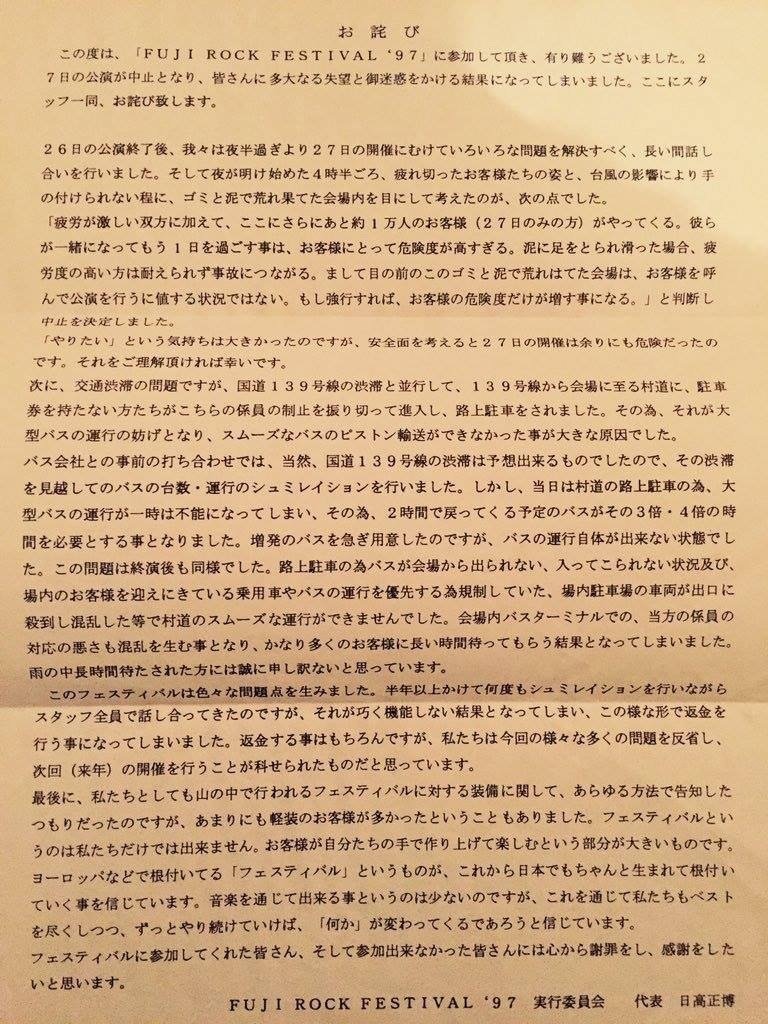 お詫び
この度は、「FUJI ROCK FESTIVAL '97」に参加して頂き、有り難うございました。2
7日の公演が中止となり、皆さんに多大なる失望と御迷惑をかける結果になってしまいました。ここにスタ
ッフ一同、お詫び致します。
26日の公演終了後、我々は夜半過ぎより27日の開催にむけていろいろな問題を解決すべく、長い間話し
合いを行いました。そして夜が明け始めた4時半ごろ、疲れ切ったお客様たちの姿と、台風の影響により手
の付けられない程に、ゴミと泥で荒れ果てた会場内を目にして考えたのが、次の点でした。
「疲労が激しい双方に加えて、ここにさらにあと約1万人のお客様（27日のみの方）がやってくる。彼ら
が一緒になってもう1日を過ごす事は、お客様にとって危険度が高すぎる。泥に足をとられ滑った場合、疲
労度の高い方は耐えられず事故につながる。まして目の前のこのゴミと泥で荒れはてた会場は、お客様を呼
んで公演を行うに値する状況ではない。もし強行すれば、お客様の危険度だけが増す事になる。」と判断し
中止を決定しました。
「やりたい」という気持ちは大きかったのですが、安全面を考えると27日の開催は余りにも危険だったの
です。それをご理解頂ければ幸いです。
次に、交通渋滞の問題ですが、国道139号線の渋滞と並行して、139号線から会場に至る村道に、駐車
券を持たない方たちがこちらの係員の制止を振り切って進入し、路上駐車をされました。その為、それが大
型バスの運行の妨げとなり、スムーズなバスのピストン輸送ができなかった事が大きな原因でした。
バス会社との事前の打ち合わせでは、当然、国道139号線の渋滞は予想出来るものでしたので、その渋滞
を見越してのバスの台数・運行のシュミレイションを行いました。しかし、当日は村道の路上駐車の為、大
型バスの運行が一時は不能になってしまい、その為、2時間で戻ってくる予定のバスがその3倍・4倍の時
間を必要とする事となりました。増発のバスを急ぎ用意したのですが、バスの運行自体が出来ない状態でし
た。この問題は終演後も同様でした。路上駐車の為バスが会場から出られない、入ってこられない状況及び、
場内のお客様を迎えにきている乗用車やバスの運行を優先する為規制していた、場内駐車場の車両が出口に
殺到し混乱した等で村道のスムーズな運行ができませんでした。会場内バスターミナルでの、当方の係員の
対応の悪さも混乱を生む事となり、かなり多くのお客様に長い時間待ってもらう結果となってしまいました。
雨の中長時間待たされた方には誠に申し訳ないと思っています。
このフェスティバルは色々な問題点を生みました。半年以上かけて何度もシュミレイションを行いながら
スタッフ全員で話し合ってきたのですが、それが巧く機能しない結果となってしまい、この様な形で返金を
行う事になってしまいました。返金する事はもちろんですが、私たちは今回の様々な多くの問題を反省し、
次回（来年）の開催を行うことが科せられたものだと思っています。
最後に、私たちとしても山の中で行われるフェスティバルに対する装備に関して、あらゆる方法で告知した
つもりだったのですが、あまりにも軽装のお客様が多かったということもありました。フェスティバルとい
うのは私たちだけでは出来ません。お客様が自分たちの手で作り上げて楽しむという部分が大きいものです。
ヨーロッパなどで根付いてる「フェスティバル」というものが、これから日本でもちゃんと生まれて根付い
ていく事を信じています。音楽を通じて出来る事というのは少ないのですが、これを通じて私たちもベスト
を尽くしつつ、ずっとやり続けていけば、「何か」が変わってくるであろうと信じています。
フェスティバルに参加してくれた皆さん、そして参加出来なかった皆さんには心から謝罪をし、感謝をした
いと思います。
FUJI ROCK FESTIVAL '97 実行委員会 代表 日高正博